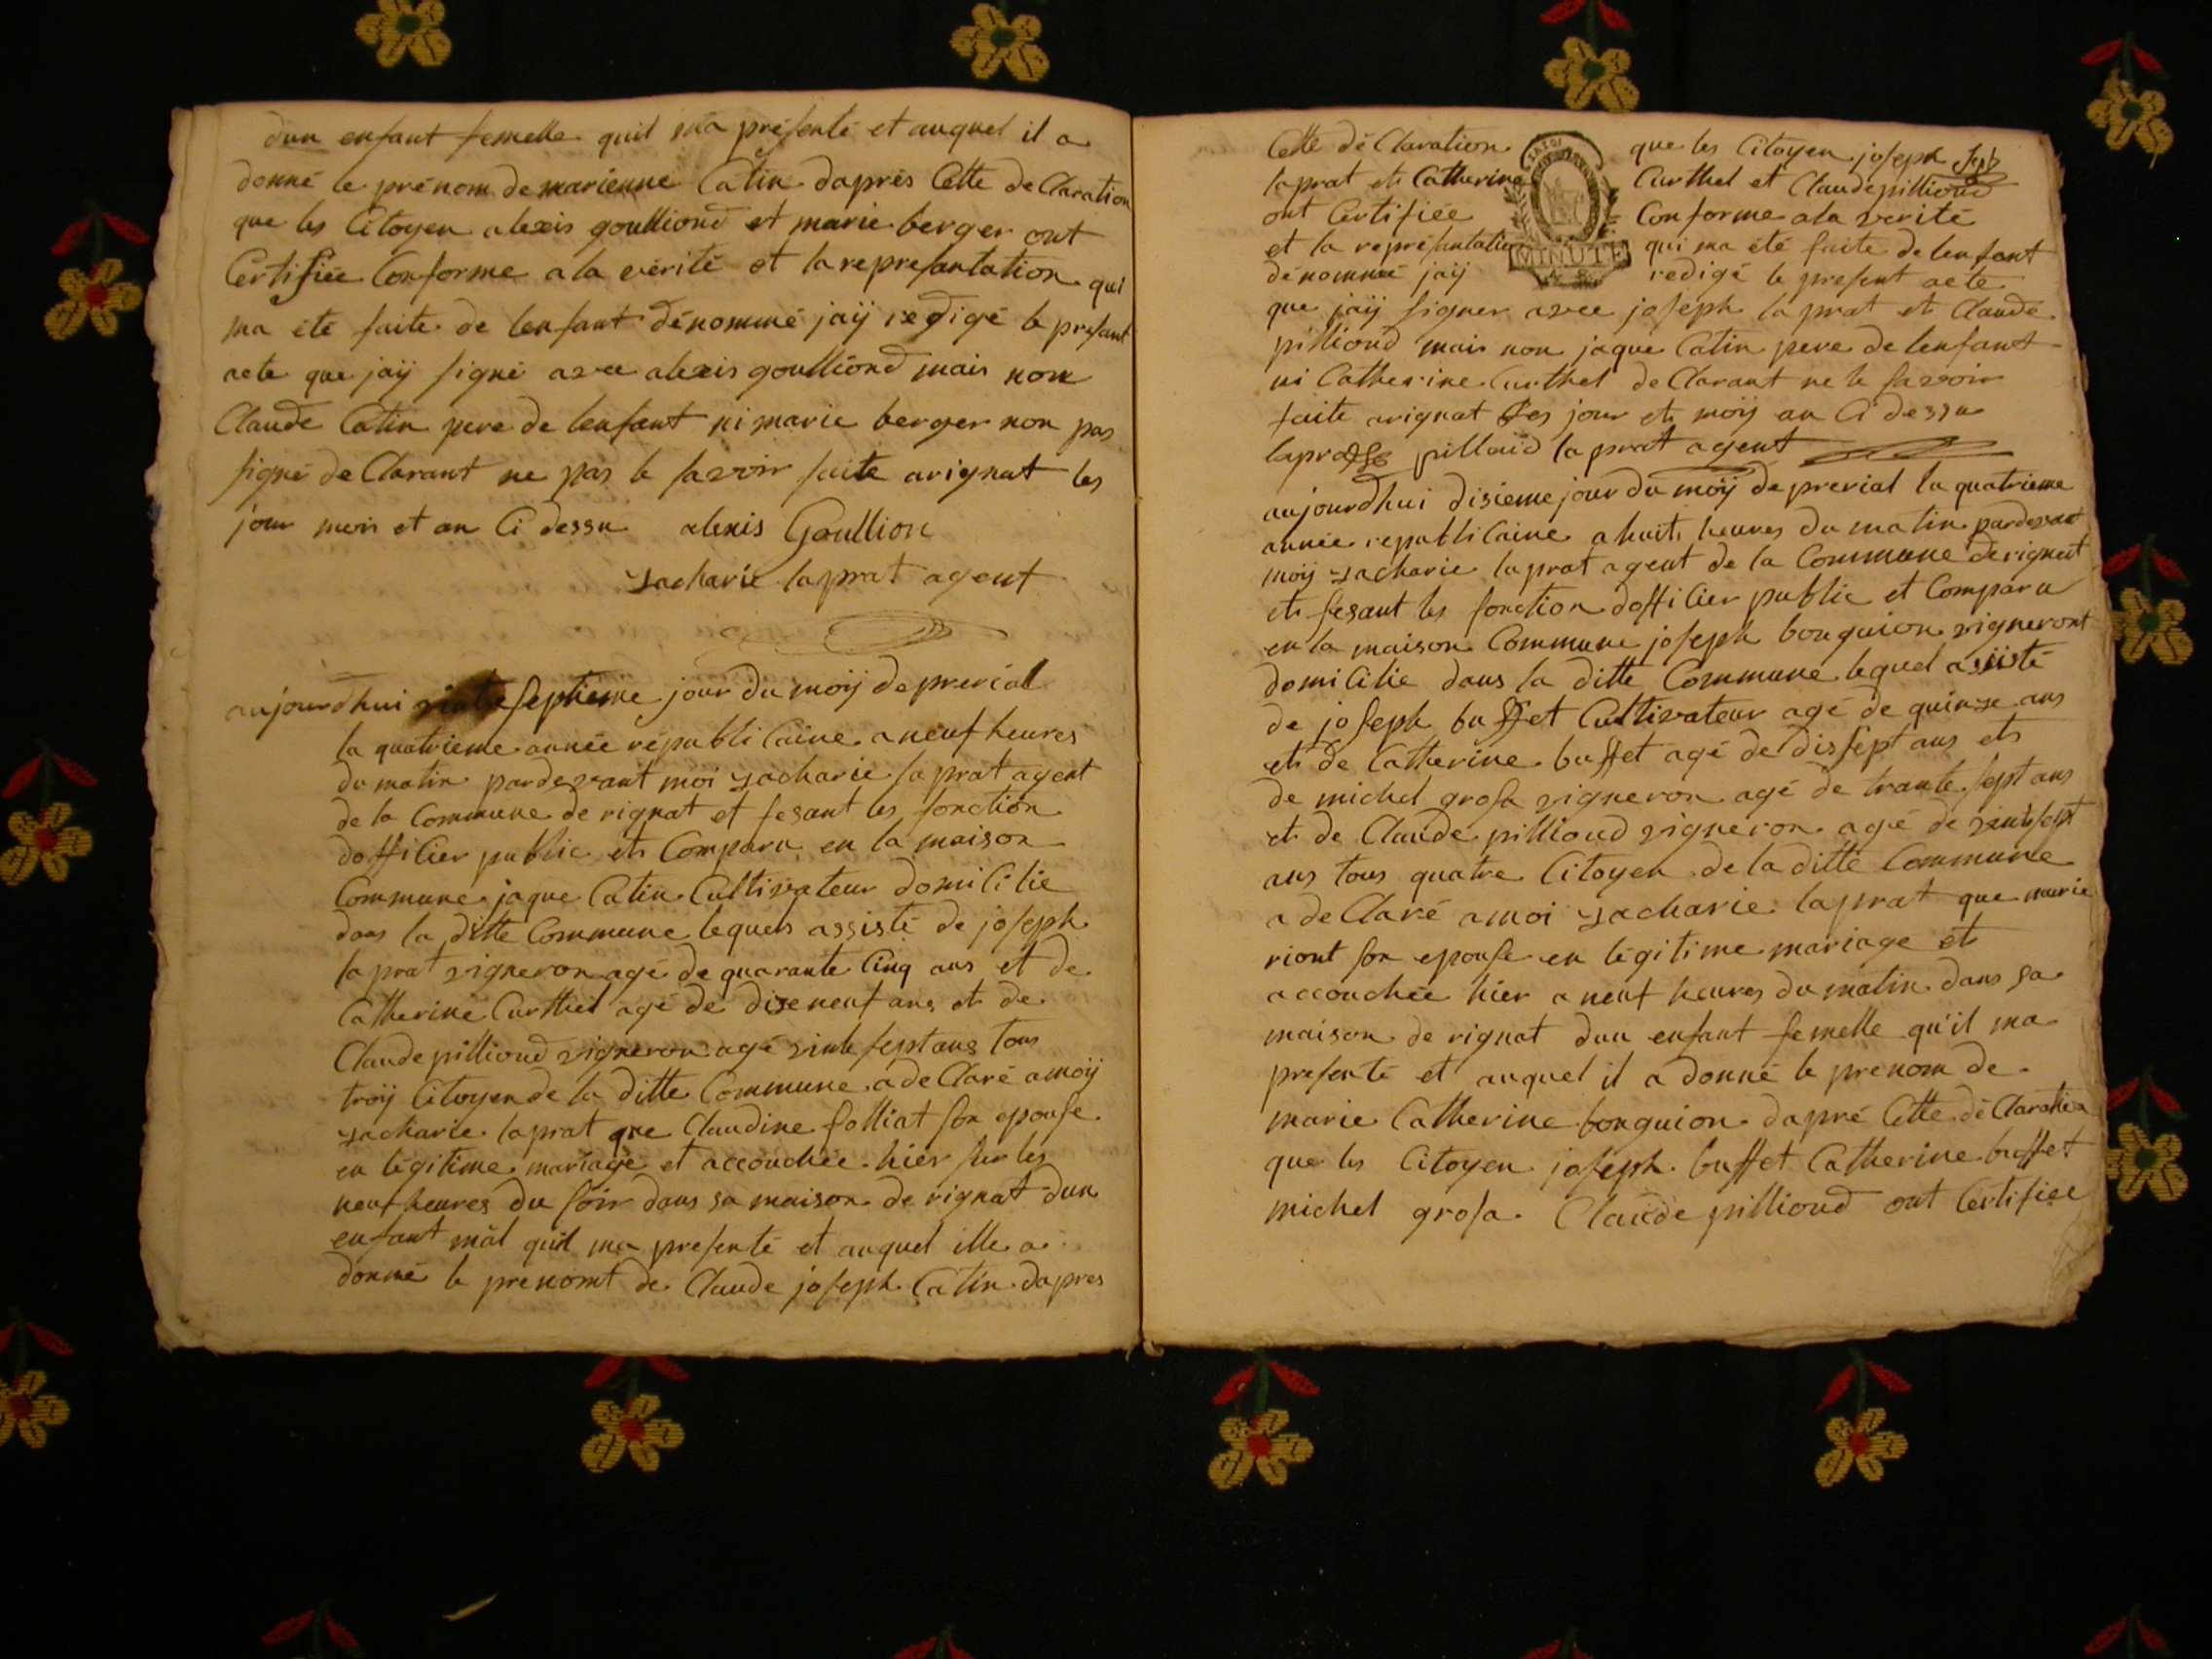 dun enfant femelle quil ma présenté et auquel il a
donné le prénom de marienne Catin daprés Cette de Claration
que les Citoyen alexis goullioud et marie berger ont
Certifiée Conforme a la vérité et la represantation qui
ma été faite de lenfant dénommé jaÿ redigé le presant
acte que jaÿ signé avec alexis goullioud mais non
Claude Catin pere de lenfant ni marie berger non pas
signé de Clarant ne pas le savoir faite arignat les
jour mois et an Ci dessu alexis Goullion
zacharie laprat agent
aujourdhui septieme jour du moÿ de prerial
la quatrieme année républiCaine a neuf heures
du matin pardevant moi zacharie laprat agent
de la Commune de rignat et fesant les fonction
doffiCier public et Comparu en la maison
Commune jaque Catin Cultivateur domiCilie
dans la ditte Commune lequels assisté de joseph
laprat vigneron agé de quarante Cinq ans et de
Catherine Curthel agé de dixe neuf ans et de
Claude pillioud vigneron agé vinte sept ans tous
troÿ Citoyen de la ditte Commune a de Claré a moÿ
zacharie laprat que Claudine folliat son epouse
en légitime mariage et accouchée hier sur les
neuf heures du soir dans sa maison de rignat dun
enfant mâl quil ma presenté et auquel ille a
donné le prenomt de Claude joseph Catin dapres
Cette dé Claration que les Citoyen joseph
laprat et Catherine Curthel et Claude pillioud
ont Certifiée Conforme a la verité
et la represantation qui ma été faite de lenfant
dénommé jaÿ redigé le present acte
MINUTE
que jaÿ signer avec joseph laprat et Claude
pillioud mais non jaque Catin pere de lenfant
ni Catherine Curthel de Clarant ne le savoir
faite arignat les jour et moÿ an Ci dessu
pillouid laprat agent
aujourdhui disieme jour du moÿ de prerial la quatrieme
année republiCaine a huit heures du matin pardevant
moÿ zacharie laprat agent de la Commune derignat
et fesant les fonction doffiCier public et Comparu
en la maison Commune joseph bouguion vigneront
domiCilie dans la ditte Commune lequel assisté
de joseph buffet Cultivateur agé de quinze ans
et de Catherine buffet agé de dissept ans et
de michel grosa vigneron agé de trante sept ans
et de Claude pillioud vigneron agé de vintesept
ans tous quatre Citoyen de la ditte Commune
a de Claré a moi zacharie laprat que marie
riont son epouse en légitime mariage et
accouchée hier a neuf heures du matin dans sa
maison de rignat dun enfant femelle qu'il ma
presenté et auquel il a donné le prenom de
marie Catherine bouguion dapré Cette dé Claration
que les Citoyen joseph buffet Catherine buffet
michel grosa Claude pillioud ont Certifiée